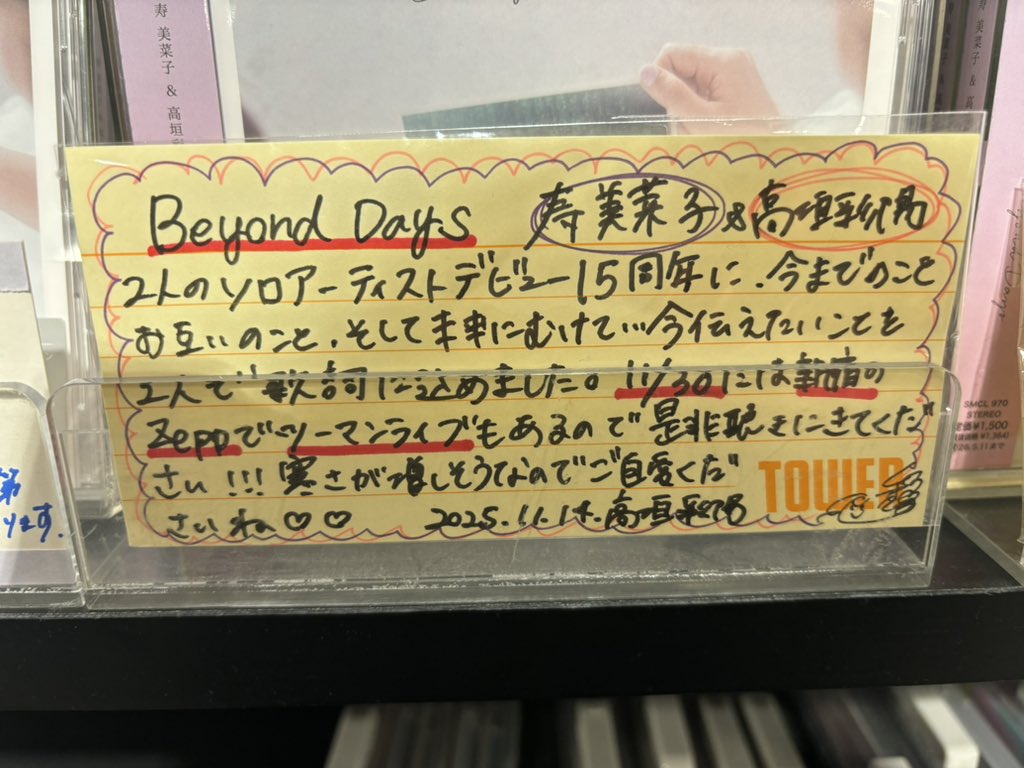 寿 美菜子 & 高垣
Beyond Days 寿 美菜子 & 高垣彩陽
2人のソロアーティストデビュー15周年に、今までのこと
お互いのこと、そして未来にむけて…今伝えたいことを
2人で歌詞に込めました。11/30には新宿の
Zeppでツーマンライブもあるので是非聴きにきてくだ
さい!!!寒さが増しそうなのでご自愛くだ
さいね♡♡ 2025.11.14.高垣彩陽
TOWER
SMCL 970
STEREO
定価¥1,500
ります。